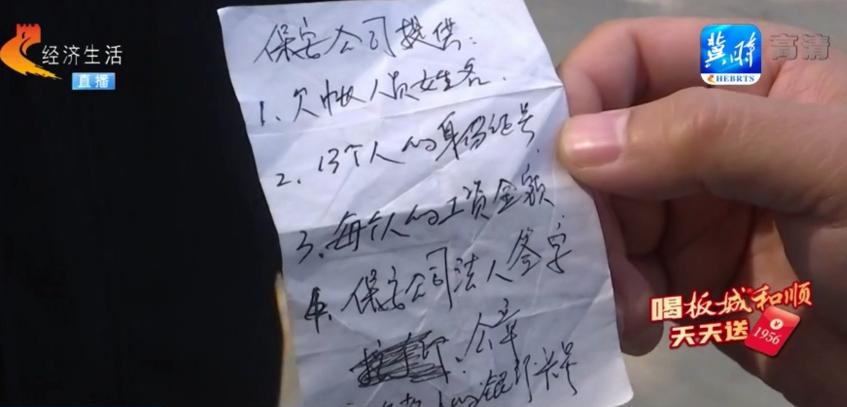 经济生活
直播
冀时
CHEBRTS
高清
保安公司提供:
1、欠帐人员姓名、
2、13个人的身份证号
3、每个人的工资金额
4、保安公司法人签字
公章
人的银行卡号
喝板城和顺
天天送
1956